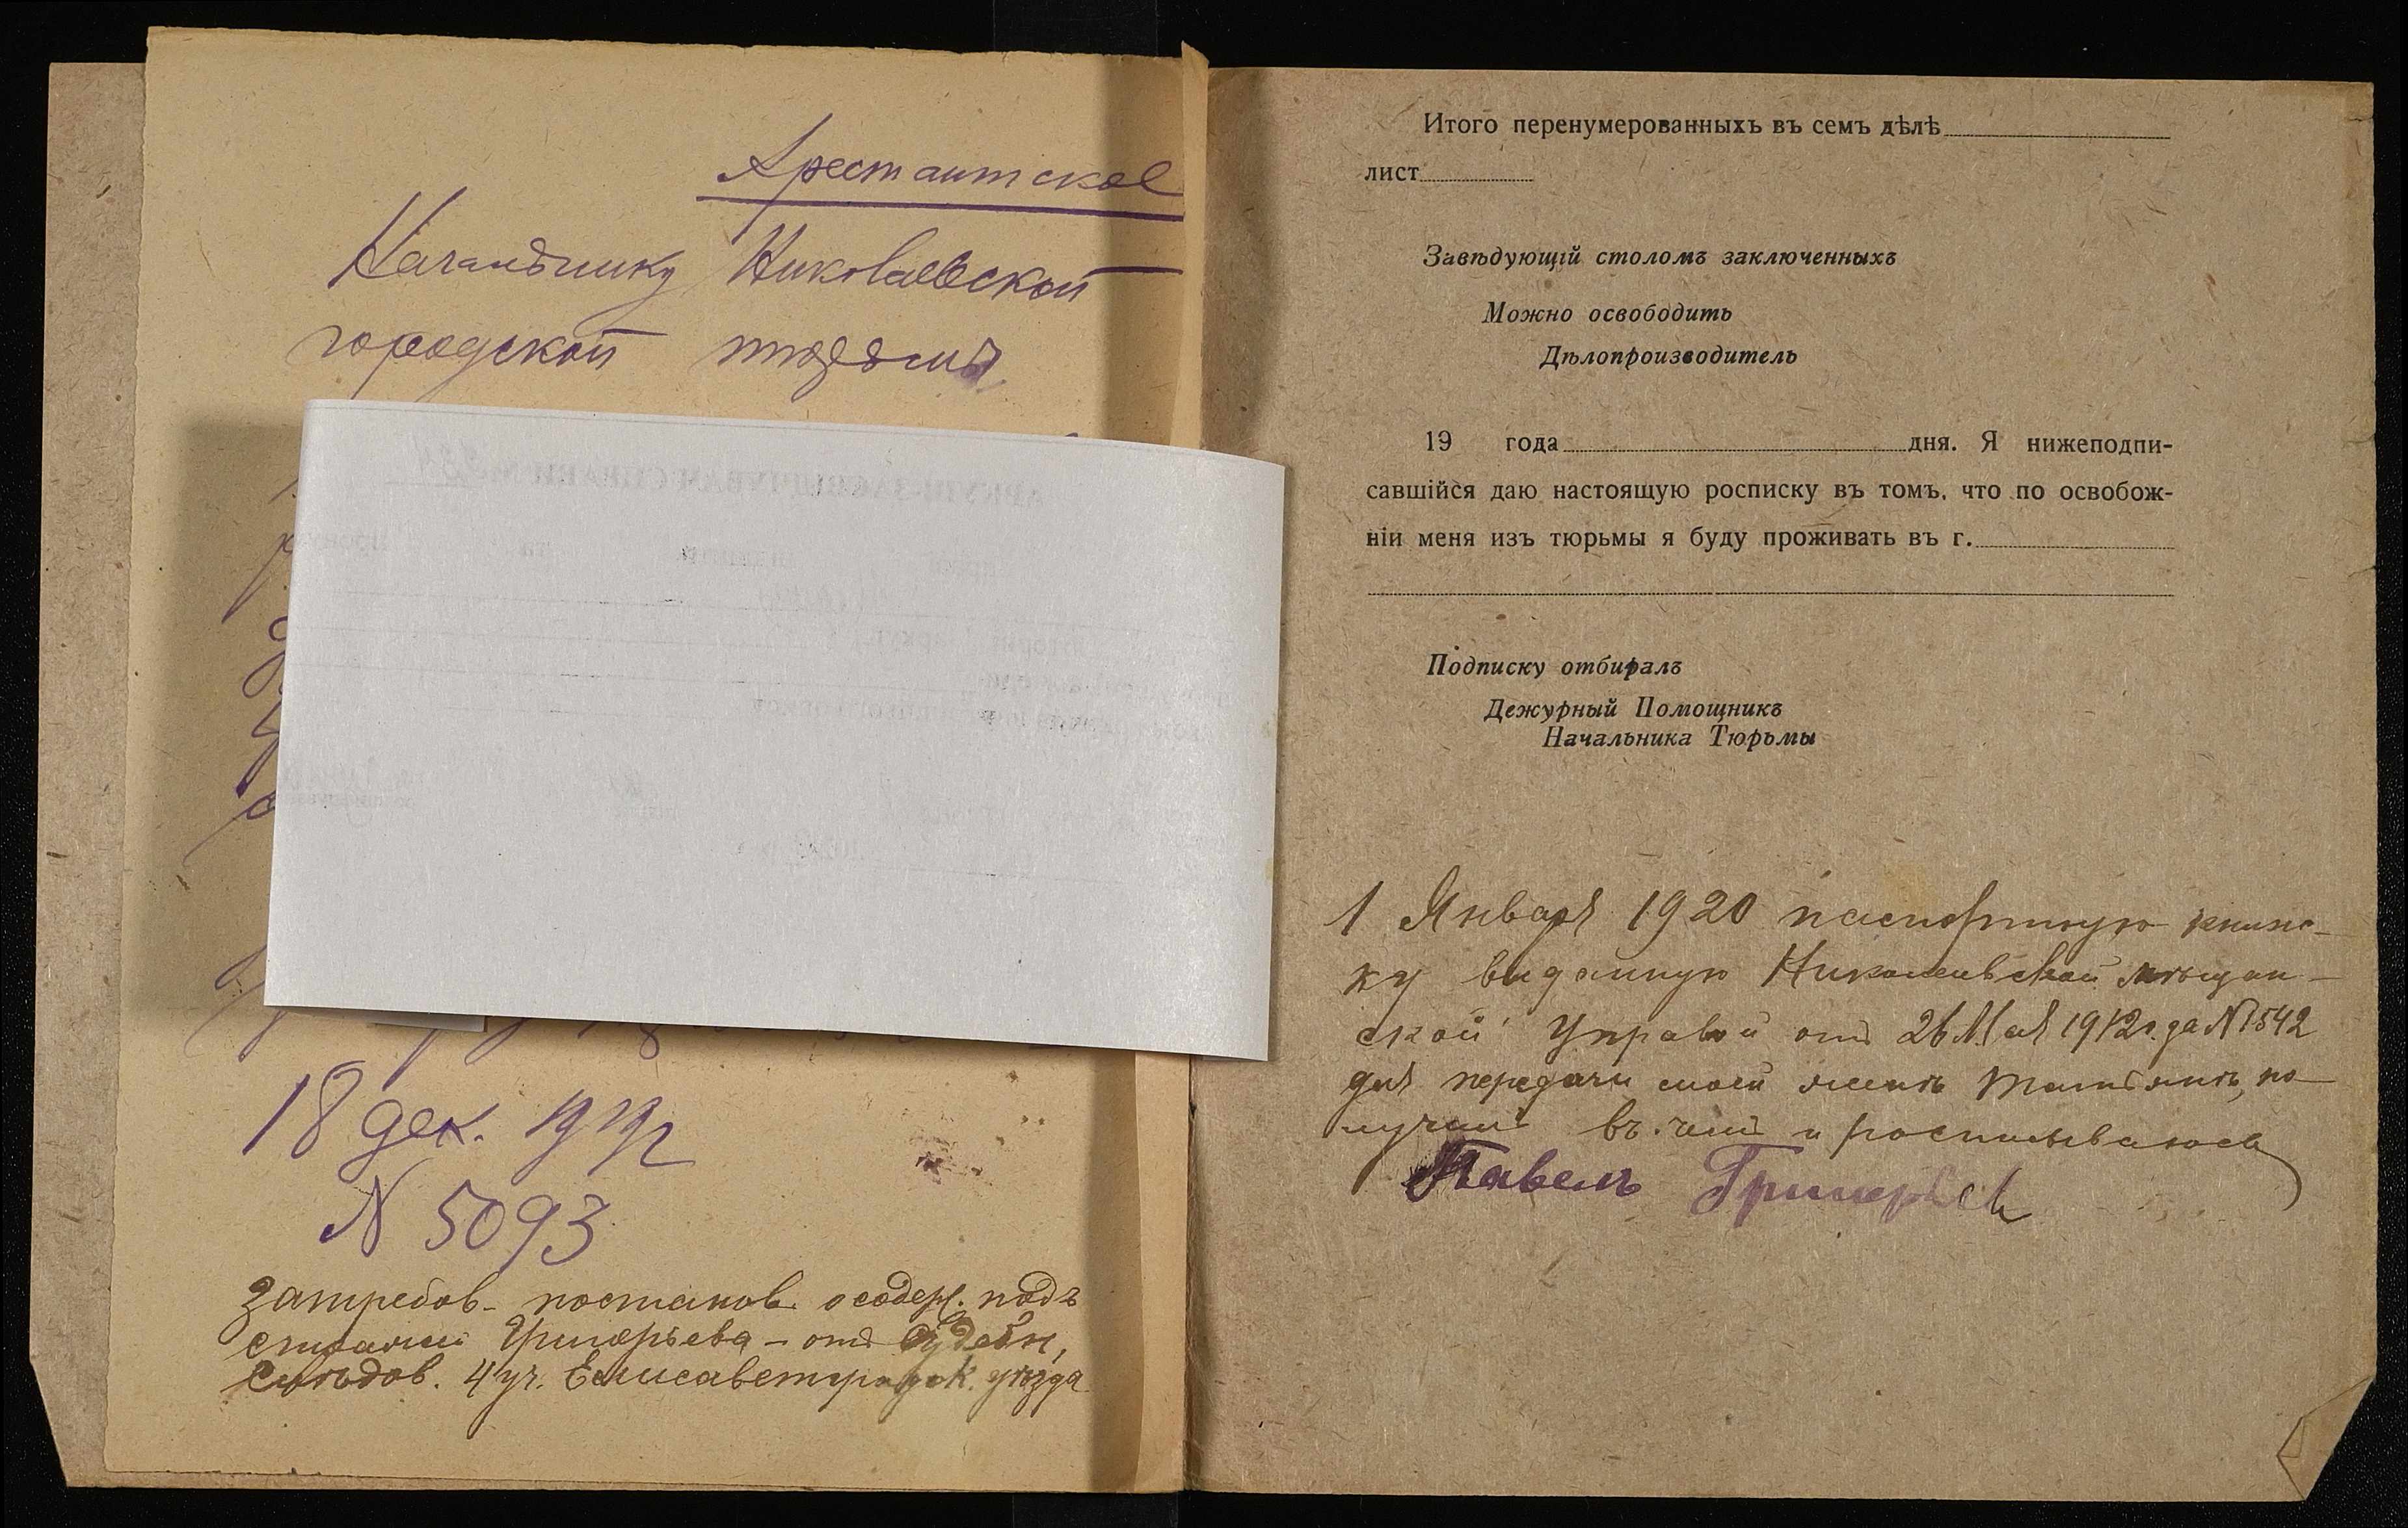 Арестантское
Начальнику Николаевской
городской тюрьмы
18 дек. 1919 г
N 5093
Затребов. постанов. о содерж. подъ
стражей Григорьева – отъ Судебн,
Слѣдов. 4 уч. Елисаветградск. уѣзда
Итого перенумерованныхъ въ семъ дѣлѣ
лист
Завѣдующій столомъ заключенныхъ
Можно освободить
Дѣлопроизводитель
19 года дня. Я нижеподпи-
савшійся даю настоящую росписку въ томъ, что по освобож-
ніи меня изъ тюрьмы я буду проживать въ г.
Подписку отбиралъ
Дежурный Помощникъ
Начальника Тюрьмы
1 Января 1920 паспортную книж-
ку выданную Николаевской мѣщан-
ской Управой отъ 26 Мая 1912 г. за N 1542
для передачи моей женѣ Татьянѣ, по-
лучилъ въ чемъ и росписываюсь
Павелъ Григорьев